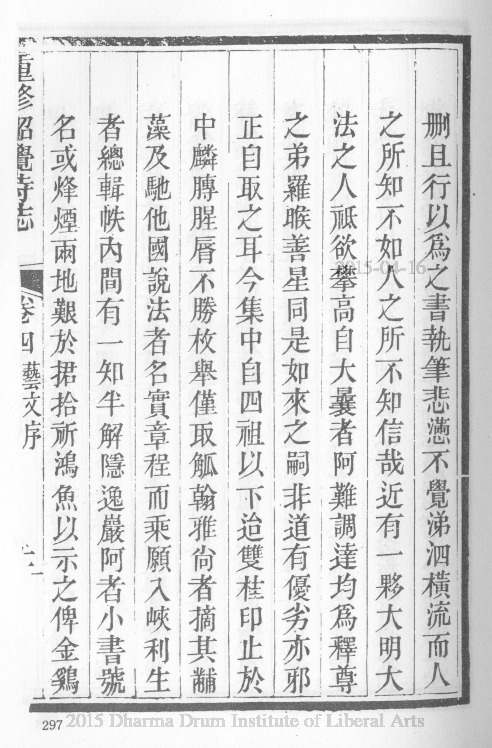 刪且行以爲之書執筆悲懣不覺涕泗橫流而人
之所知不如人之所不知信哉近有一夥大明大
法之人祗欲攀高自大曩者阿難調達均爲釋尊
之弟羅睺善星同是如來之嗣非道有優劣亦邪
正自取之耳今集中自四祖以下迨雙桂印止於
中麟膊腥脣不勝枚舉僅取觚翰雅尙者摘其黼
藻及馳他國說法者名實章程而乘願入峽利生
者總輯帙內間有一知半解隱逸巖阿者小書號
名或烽煙兩地艱於捃拾祈鴻魚以示之俾金鷄
重修昭覺寺志
卷四 藝文序
297
2015-04-16
2015 Dharma Drum Institute of Liberal Arts